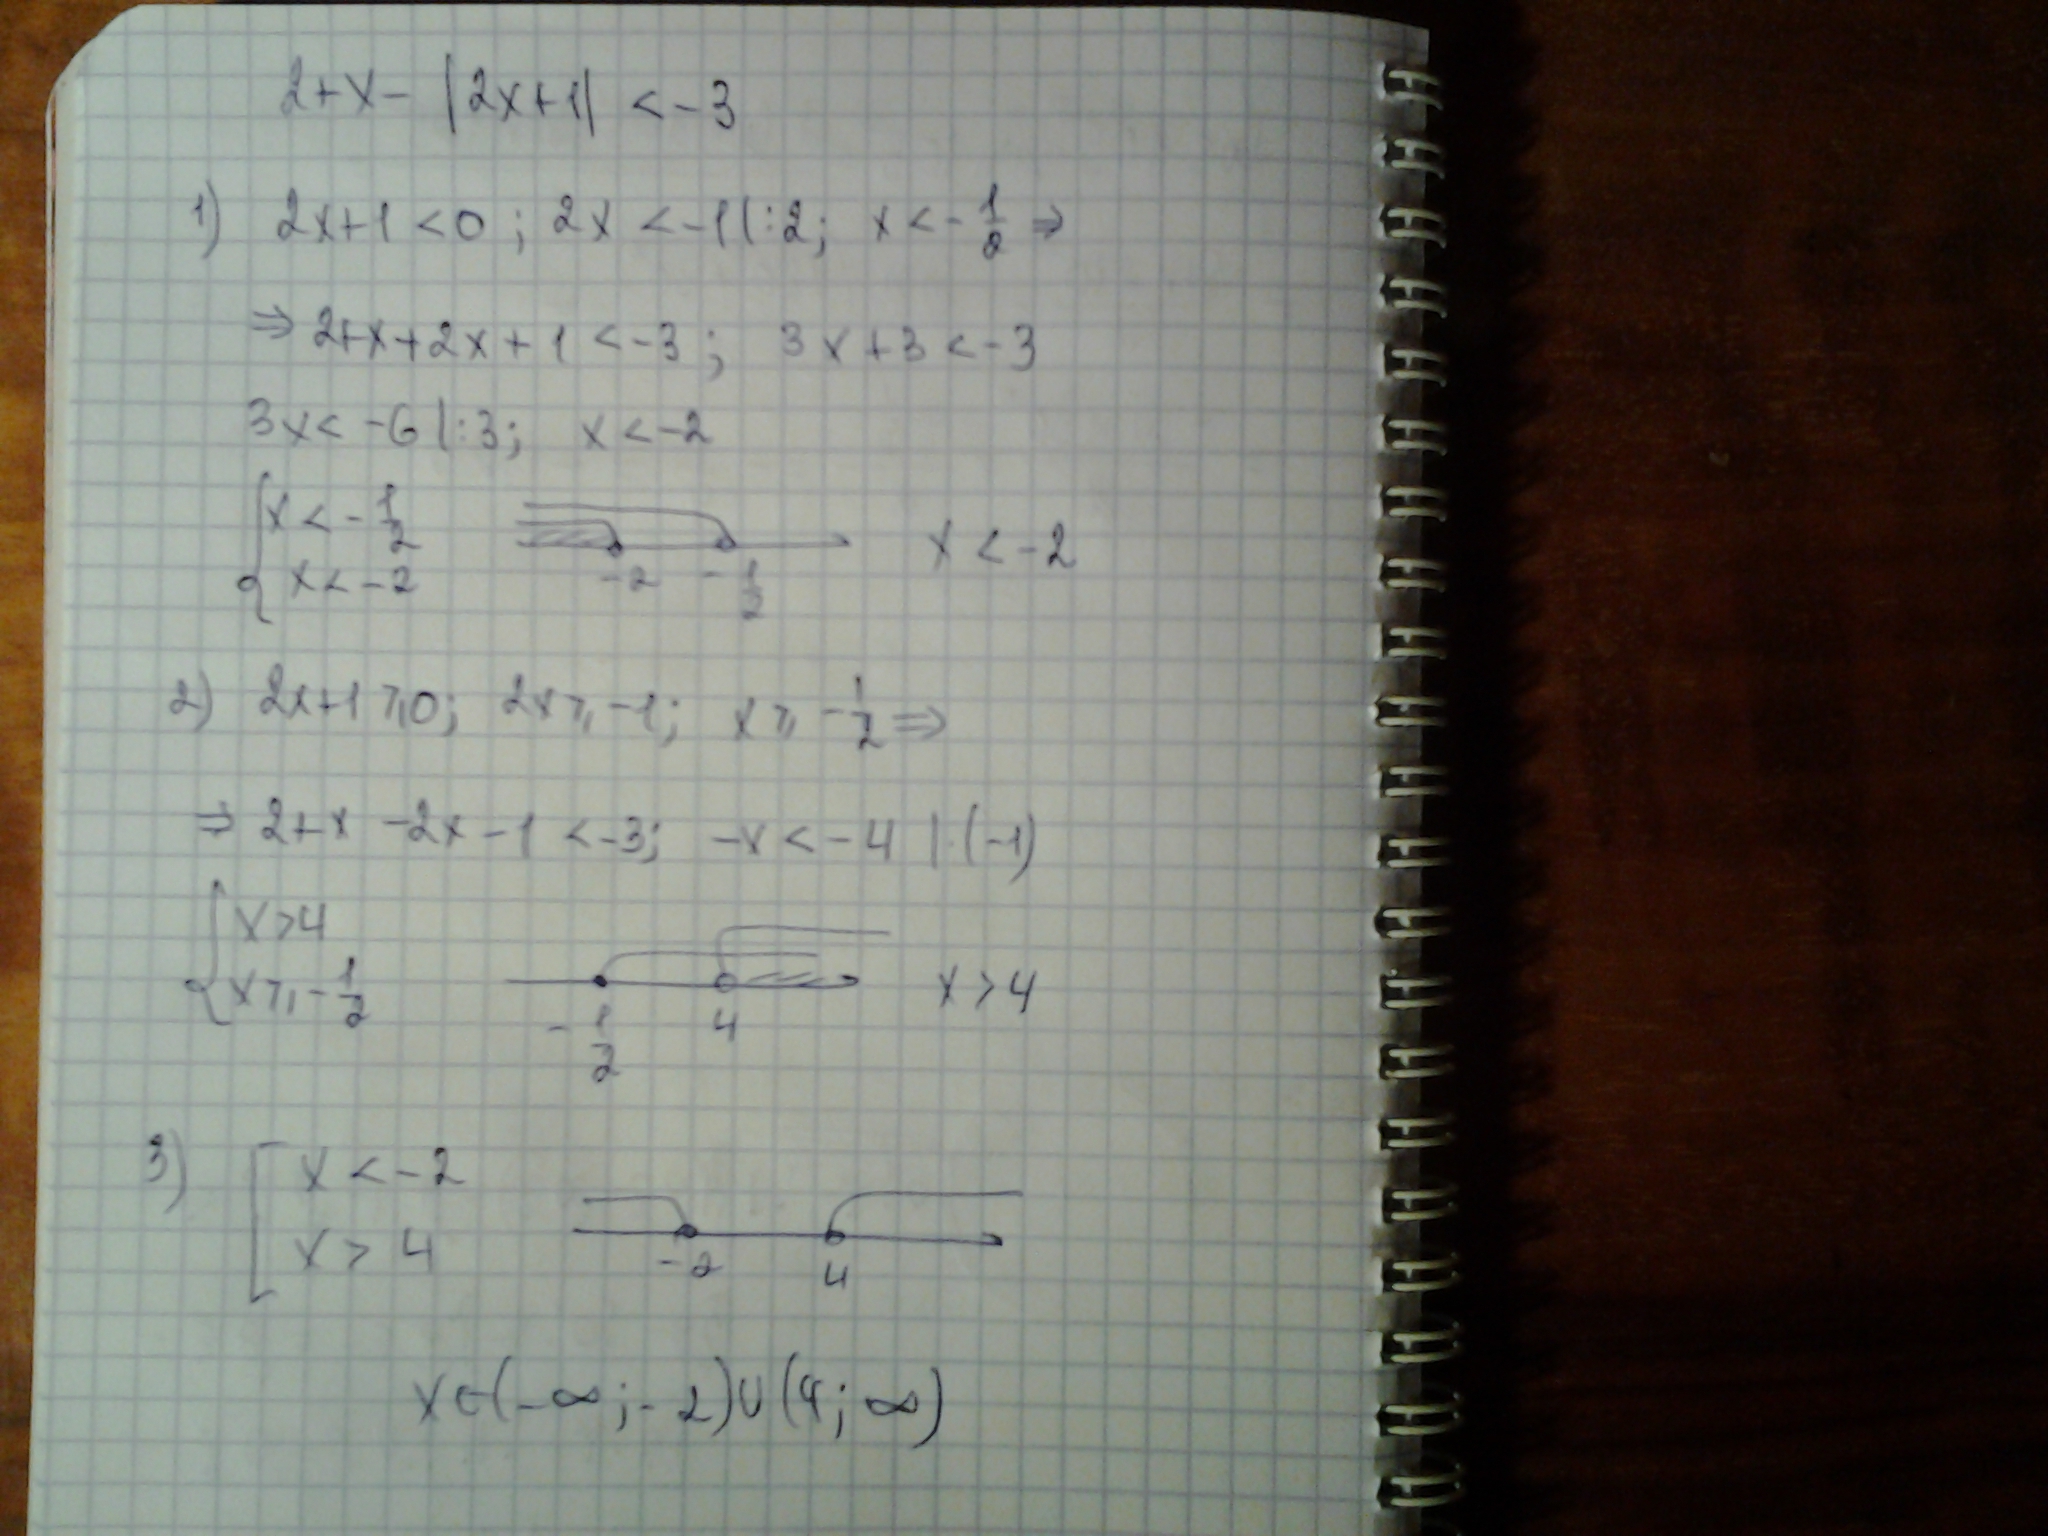 2+x-|2x+1| <-3
1) 2x+1<0; 2x<-1|:2; x<-1/2 ⇒
⇒ 2+x+2x+1<-3; 3x+3<-3
3x<-6|:3; x<-2
{x<-1/2
x<-2
-2 -1/2
x<-2
2) 2x+1⩾0; 2x⩾-1; x⩾-1/2 ⇒
⇒ 2+x-2x-1<-3; -x<-4 |·(-1)
{x>4
x⩾-1/2
-1/2 4
x>4
3) [x<-2
x>4
-2 4
x∈(-∞;-2)∪(4;∞)